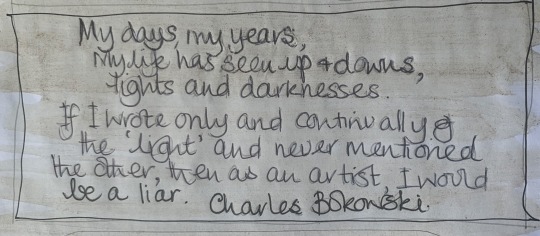 My days, my years,
My life has seen up + downs,
lights and darknesses.
If I wrote only and continually of
the 'light' and never mentioned
the other, then as an artist, I would
be a liar. Charles BOkowski.